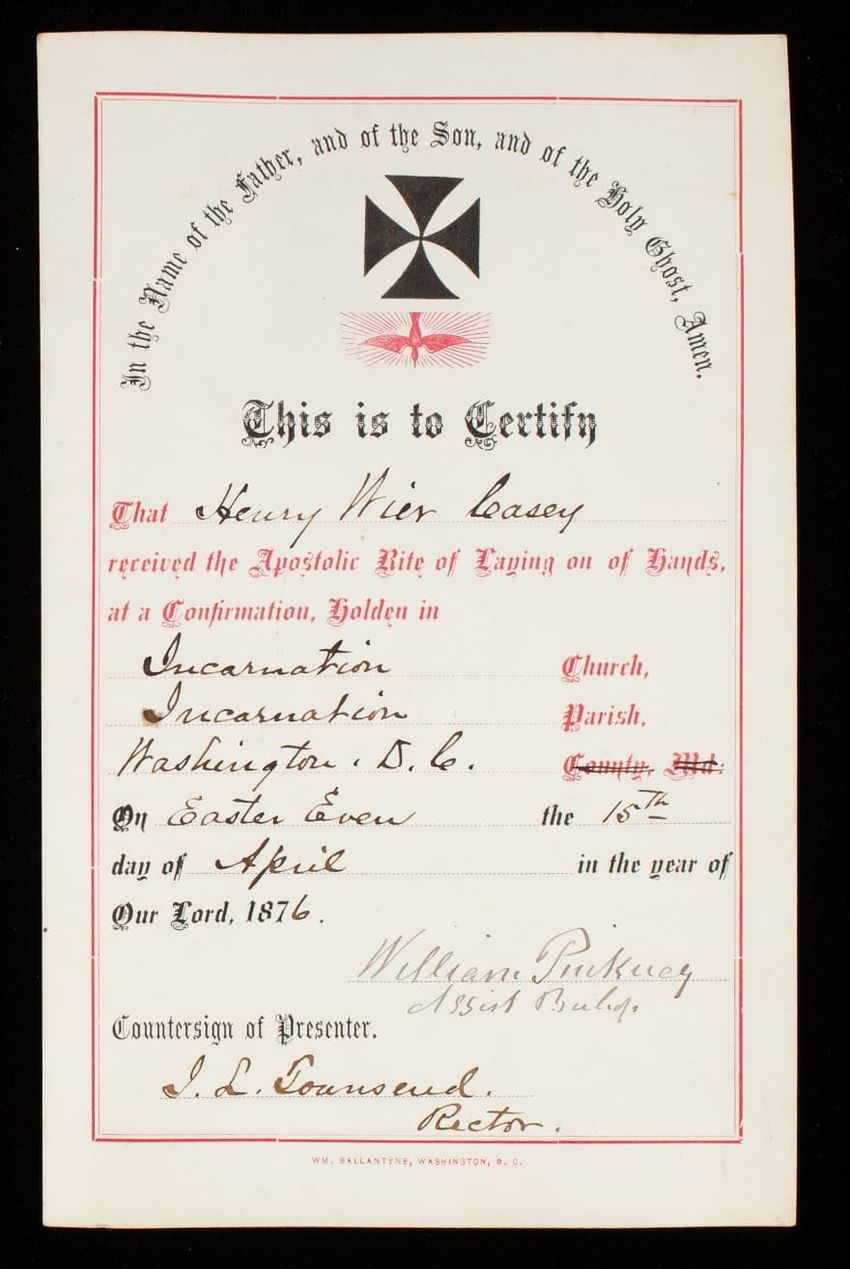 In the Name of the Father, and of the Son, and of the Holy Ghost, Amen.
This is to Certify
That Henry Wier Casey
received the Apostolic Rite of Laying on of Hands,
at a Confirmation, Holden in
Incarnation Church,
Incarnation Parish,
Washington. D. C. County, Md:
On Easter Even the 15th
day of April in the year of
Our Lord, 1876.
William Pinkney
Assist Bishop
Countersign of Presenter.
I. L. Townsend.
Rector.
WM. BALLANTYNE, WASHINGTON, D. C.